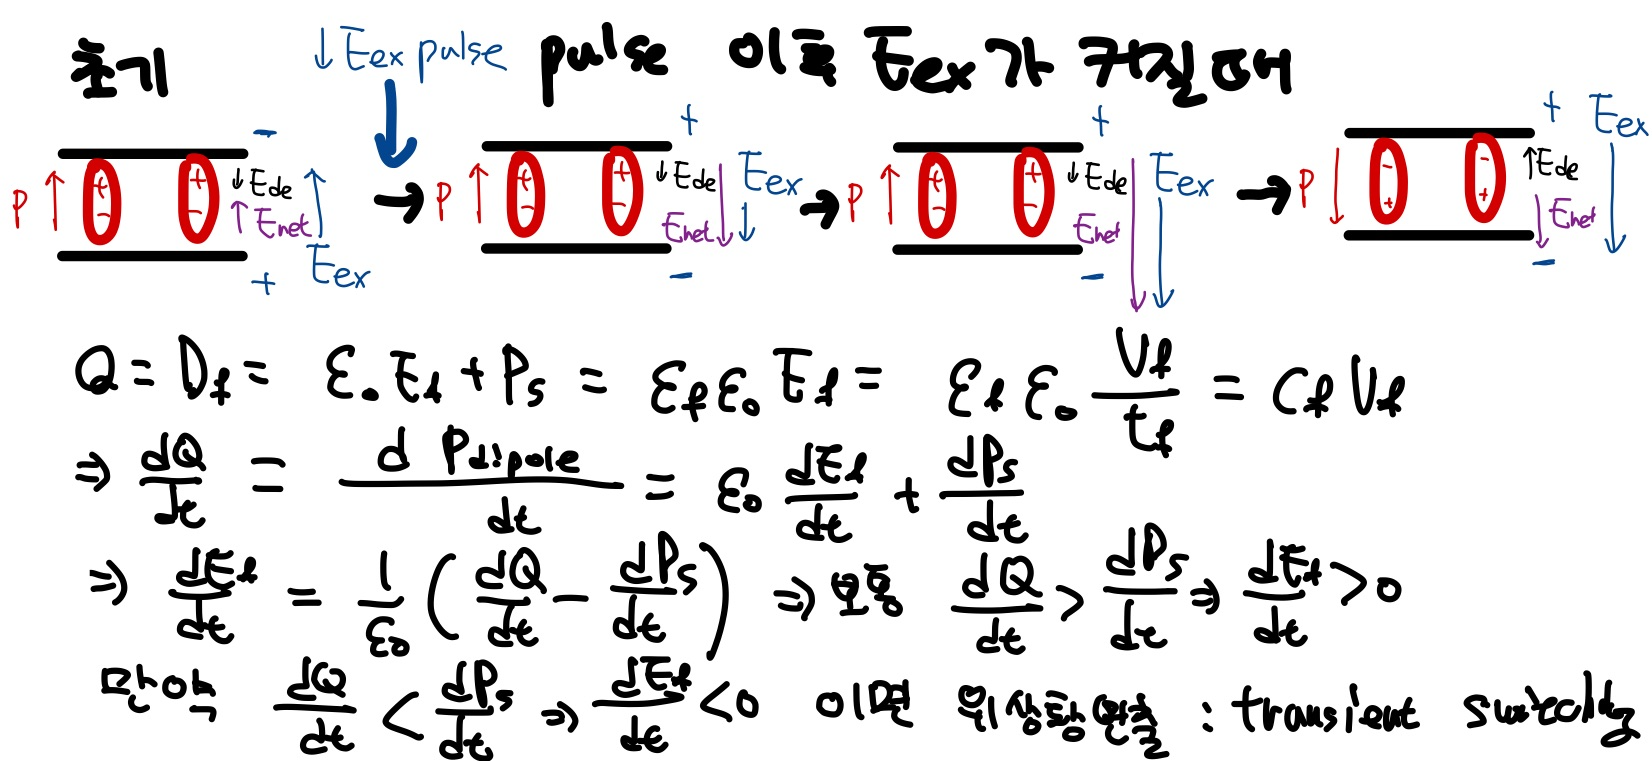 초기 ↓ Eex pulse pulse 이후 Eex가 커질때
- + + + Eex
P ↑ + - + - ↓ Ede ↑ Enet Eex → P ↑ + - + - ↓ Ede Enet Eex → P ↑ + - + - ↓ Ede Enet Eex → P ↓ - + - + ↑ Ede Enet
+ - - -
Q = D_f = ε₀E_f + P_s = ε_f ε₀ E_f = ε_f ε₀ V_f / t_f = C_f V_f
⇒ dQ/dt = d P_dipole / dt = ε₀ dE_f/dt + dP_s/dt
⇒ dE_f/dt = 1/ε₀ (dQ/dt - dP_s/dt) ⇒ 보통 dQ/dt > dP_s/dt ⇒ dE_f/dt > 0
만약 dQ/dt < dP_s/dt ⇒ dE_f/dt < 0 이면 위상황만족 : transient switching